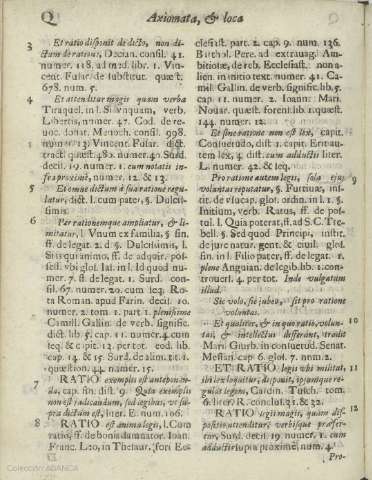 Q Axiomata, & loca
3 Et ratio disponit de dicto, non di-
ctum de ratione, Decian. consil. 41.
numer. 118. ad med. libr. 1. Vin-
cent. Fusar. de substitut. quæst.
678. num. 5.
4 Et attenditur magis quam verba
Tiraquel. in l. Si vnquam, verb.
Libertis, numer. 47. Cod. de re-
uoc. donat. Menoch. consil. 998.
numer. 13. Vincent. Fusar. dict.
tract. quæst. 482. numer. 40. Surd.
decis. 19. numer. 1. cum notatis in-
fra proximè, numer. 12. & 13.
5 Et omne dictum à sua ratione regu-
latur, dict. l. cum pater, §. Dulcis-
simis.
6 Per rationemque ampliatur, & li-
mitatur, l. Vnum ex familia, §. fin.
ff. de legat. 2. d. §. Dulcissimis, l.
Sis qui animo, ff. de adquir. pos-
sess. vbi glos. Ias. in l. Id quod nu-
mer. 7. ff. de legat. 1. Surd. con-
sil. 67. numer. 20. cum seq. Ro-
ta Roman. apud Farin. decis. 10.
numer. 2. tom. 1. part. 1. plenissimè
Camill. Gallin. de verb. signific.
dict. lib. 5. cap. 1. numer. 4. cum
seq. & cap. 12. per tot. eod. lib.
cap. 14. & 15. Surd. de alim. tit. 1.
quæstion. 44. numer. 15.
7 RATIO exemplis est anteponen-
da, cap. fin. dist. 9. Quia exemplis
non est iudicandum, sed legibus, vt su-
pra dictum est, liter. E. num. 106.
8 RATIO est anima legis, l. Cum
ratio, ff. de bonis damnator. Ioan.
Franc. Leo, in Thesaur. fori Ec-
clesiast. part. 2. cap. 9. num. 136.
Barthol. Pere. ad extrauag. Am-
bitiosæ, de reb. Ecclesiast. non a-
lien. in initio text. numer. 41. Ca-
mil. Gallin. de verb. signific. lib. 5.
cap. 11. numer. 2. Ioann. Mari.
Nouar. quæst. forens. lib. 1. quæst.
144. numer. 12.
Et sine ratione non est lex, capit.
Consuetudo, dist. 1. capit. Erit au-
tem lex, 4. dist. cum adductis liter.
L. numer. 42. & seq.
Pro ratione autem legis, sola eius 9
voluntas reputatur, §. Furtiuæ, in-
stit. de vsucap. glos. ordin. in l. 1. §.
Initium, verb. Ratus, ff. de po-
stul. l. Quia poterat, ff. ad S. C. Tre-
bell. §. Sed quod Principi, instit.
de iure natur. gent. & ciuil. glos.
fin. in l. Filio pater, ff. de legat. 1.
plenè Anguian. de legib. lib. 1. con-
trouers. 4. per tot. Inde vulgatum
illud.
Sic volo, sic iubeo, sit pro ratione
voluntas.
Et qualiter, & in quo ratio, volun- 10
tas, & intellectus differant, tradit
Mari. Giurb. in consuetud. Senat.
Messan. cap. 6. glos. 7. num. 2.
ET RATIO legis vbi militat, 11
ibi lex loquitur, disponit, ipsumque re-
gulat legem, Cardin. Tusch. tom.
6. liter. R. conclus. 31. & 32.
RATIO legis magis, quàm dis- 12
positio attenditur, verbisque præfer-
tur, Surd. decis. 19. numer. 1. cum
adductis supra proximè, num. 4.
Pro-
Colección ABANCA